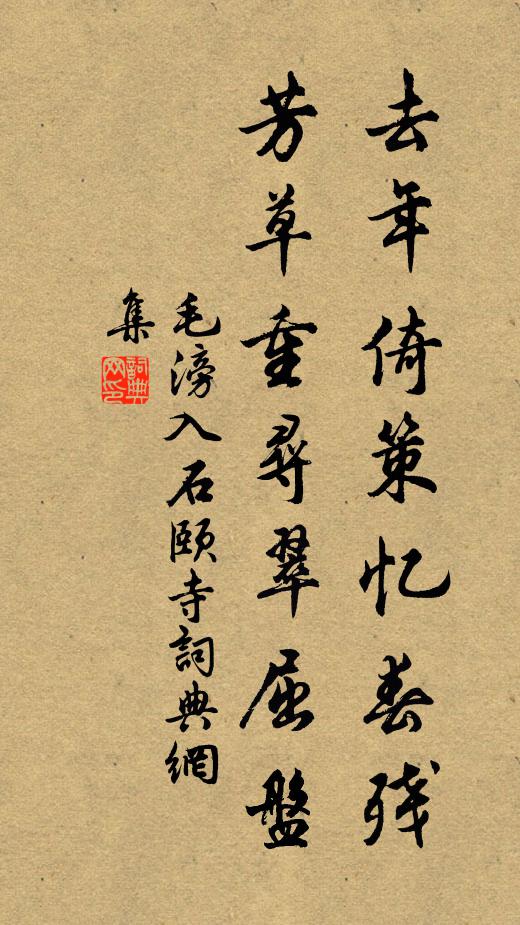 去年倚策忆春残
芳草重寻翠屈盘
毛滂入石颐寺詞典網
集
詞典
网印